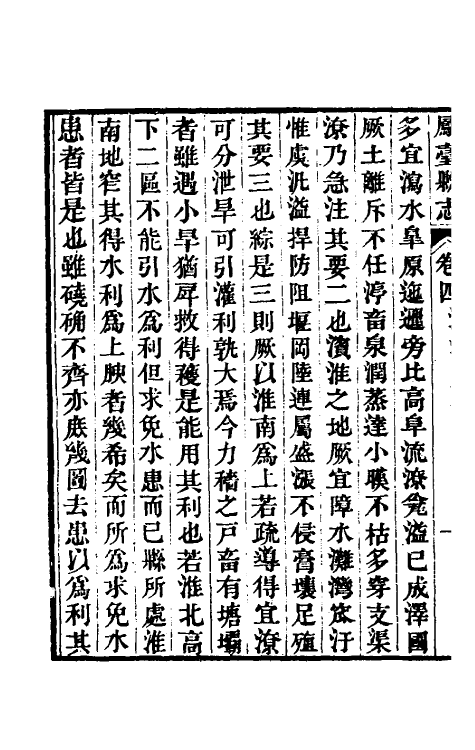 鳳臺縣志 卷四
多宜瀉水臯原迤邐旁比高阜流潦龕溢已成澤國
厥土離斥不任渟畜泉潤蒸達小暵不枯多穿支渠
潦乃急注其要二也濱淮之地厥宜障水灘灣窊汙
惟虞汎溢捍防阻堰岡陸連屬盛漲不侵膏壤足殖
其要三也綜是三則厥以淮南爲上若疏導得宜潦
可分泄旱可引灌利孰大焉今力穡之戸畜有塘壩
者雖遇小旱猶㪺救得穫是能用其利也若淮北高
下二區不能引水爲利但求免水患而已縣所處淮
南地窄其得水利爲上腴者幾希矣而所爲求免水
患者皆是也雖磽确不齊亦庶幾圖去患以爲利其